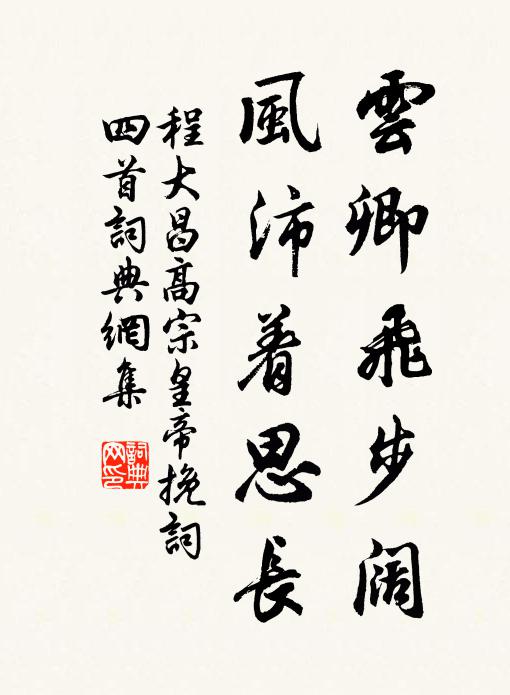 雲卿飛步阔
風沛着思長
程大昌高宗皇帝挽詞
四首詞典網集
詞典网印